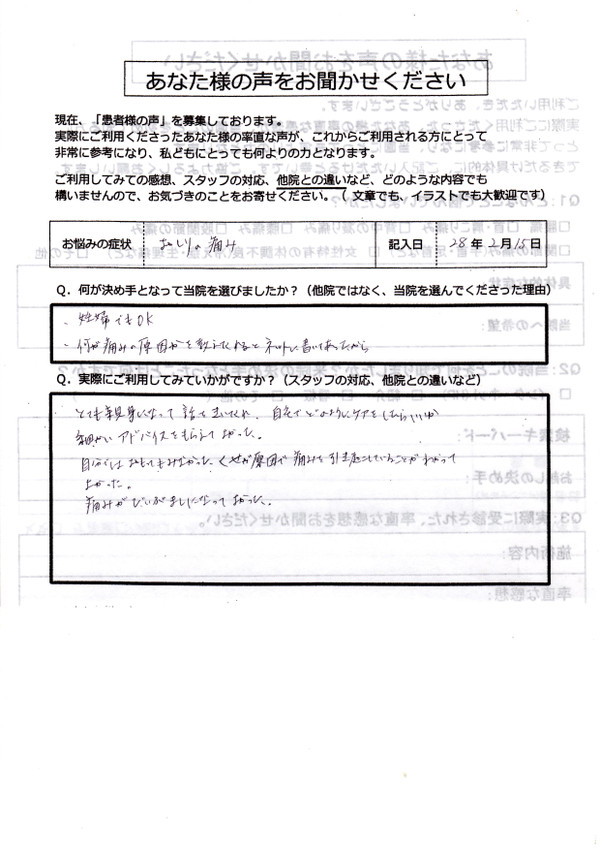 あなた様の声をお聞かせください
現在、「患者様の声」を募集しております。
実際にご利用くださったあなた様の率直な声が、これからご利用される方にとって
非常に参考になり、私どもにとっても何よりの力となります。
ご利用してみての感想、スタッフの対応、他院との違いなど、どのような内容でも
構いませんので、お気づきのことをお寄せください。（ 文章でも、イラストでも大歓迎です）
お悩みの症状 おしりの痛み 記入日 28年2月15日
Q. 何が決め手となって当院を選びましたか？（他院ではなく、当院を選んでくださった理由）
・妊婦でもOK
・何が痛みの原因かを教えてくれるとネットに書いてあったから
Q. 実際にご利用してみていかがですか？（スタッフの対応、他院との違いなど）
とても親身になって話を きいてくれ、自宅でどのようにケアをしたらいいか
細かいアドバイスをもらえてよかった。
自分ではおもてもみなかった、くせが原因で痛みを引き起こしていることがわかって
よかった。
痛みがだいぶましになってよかった。